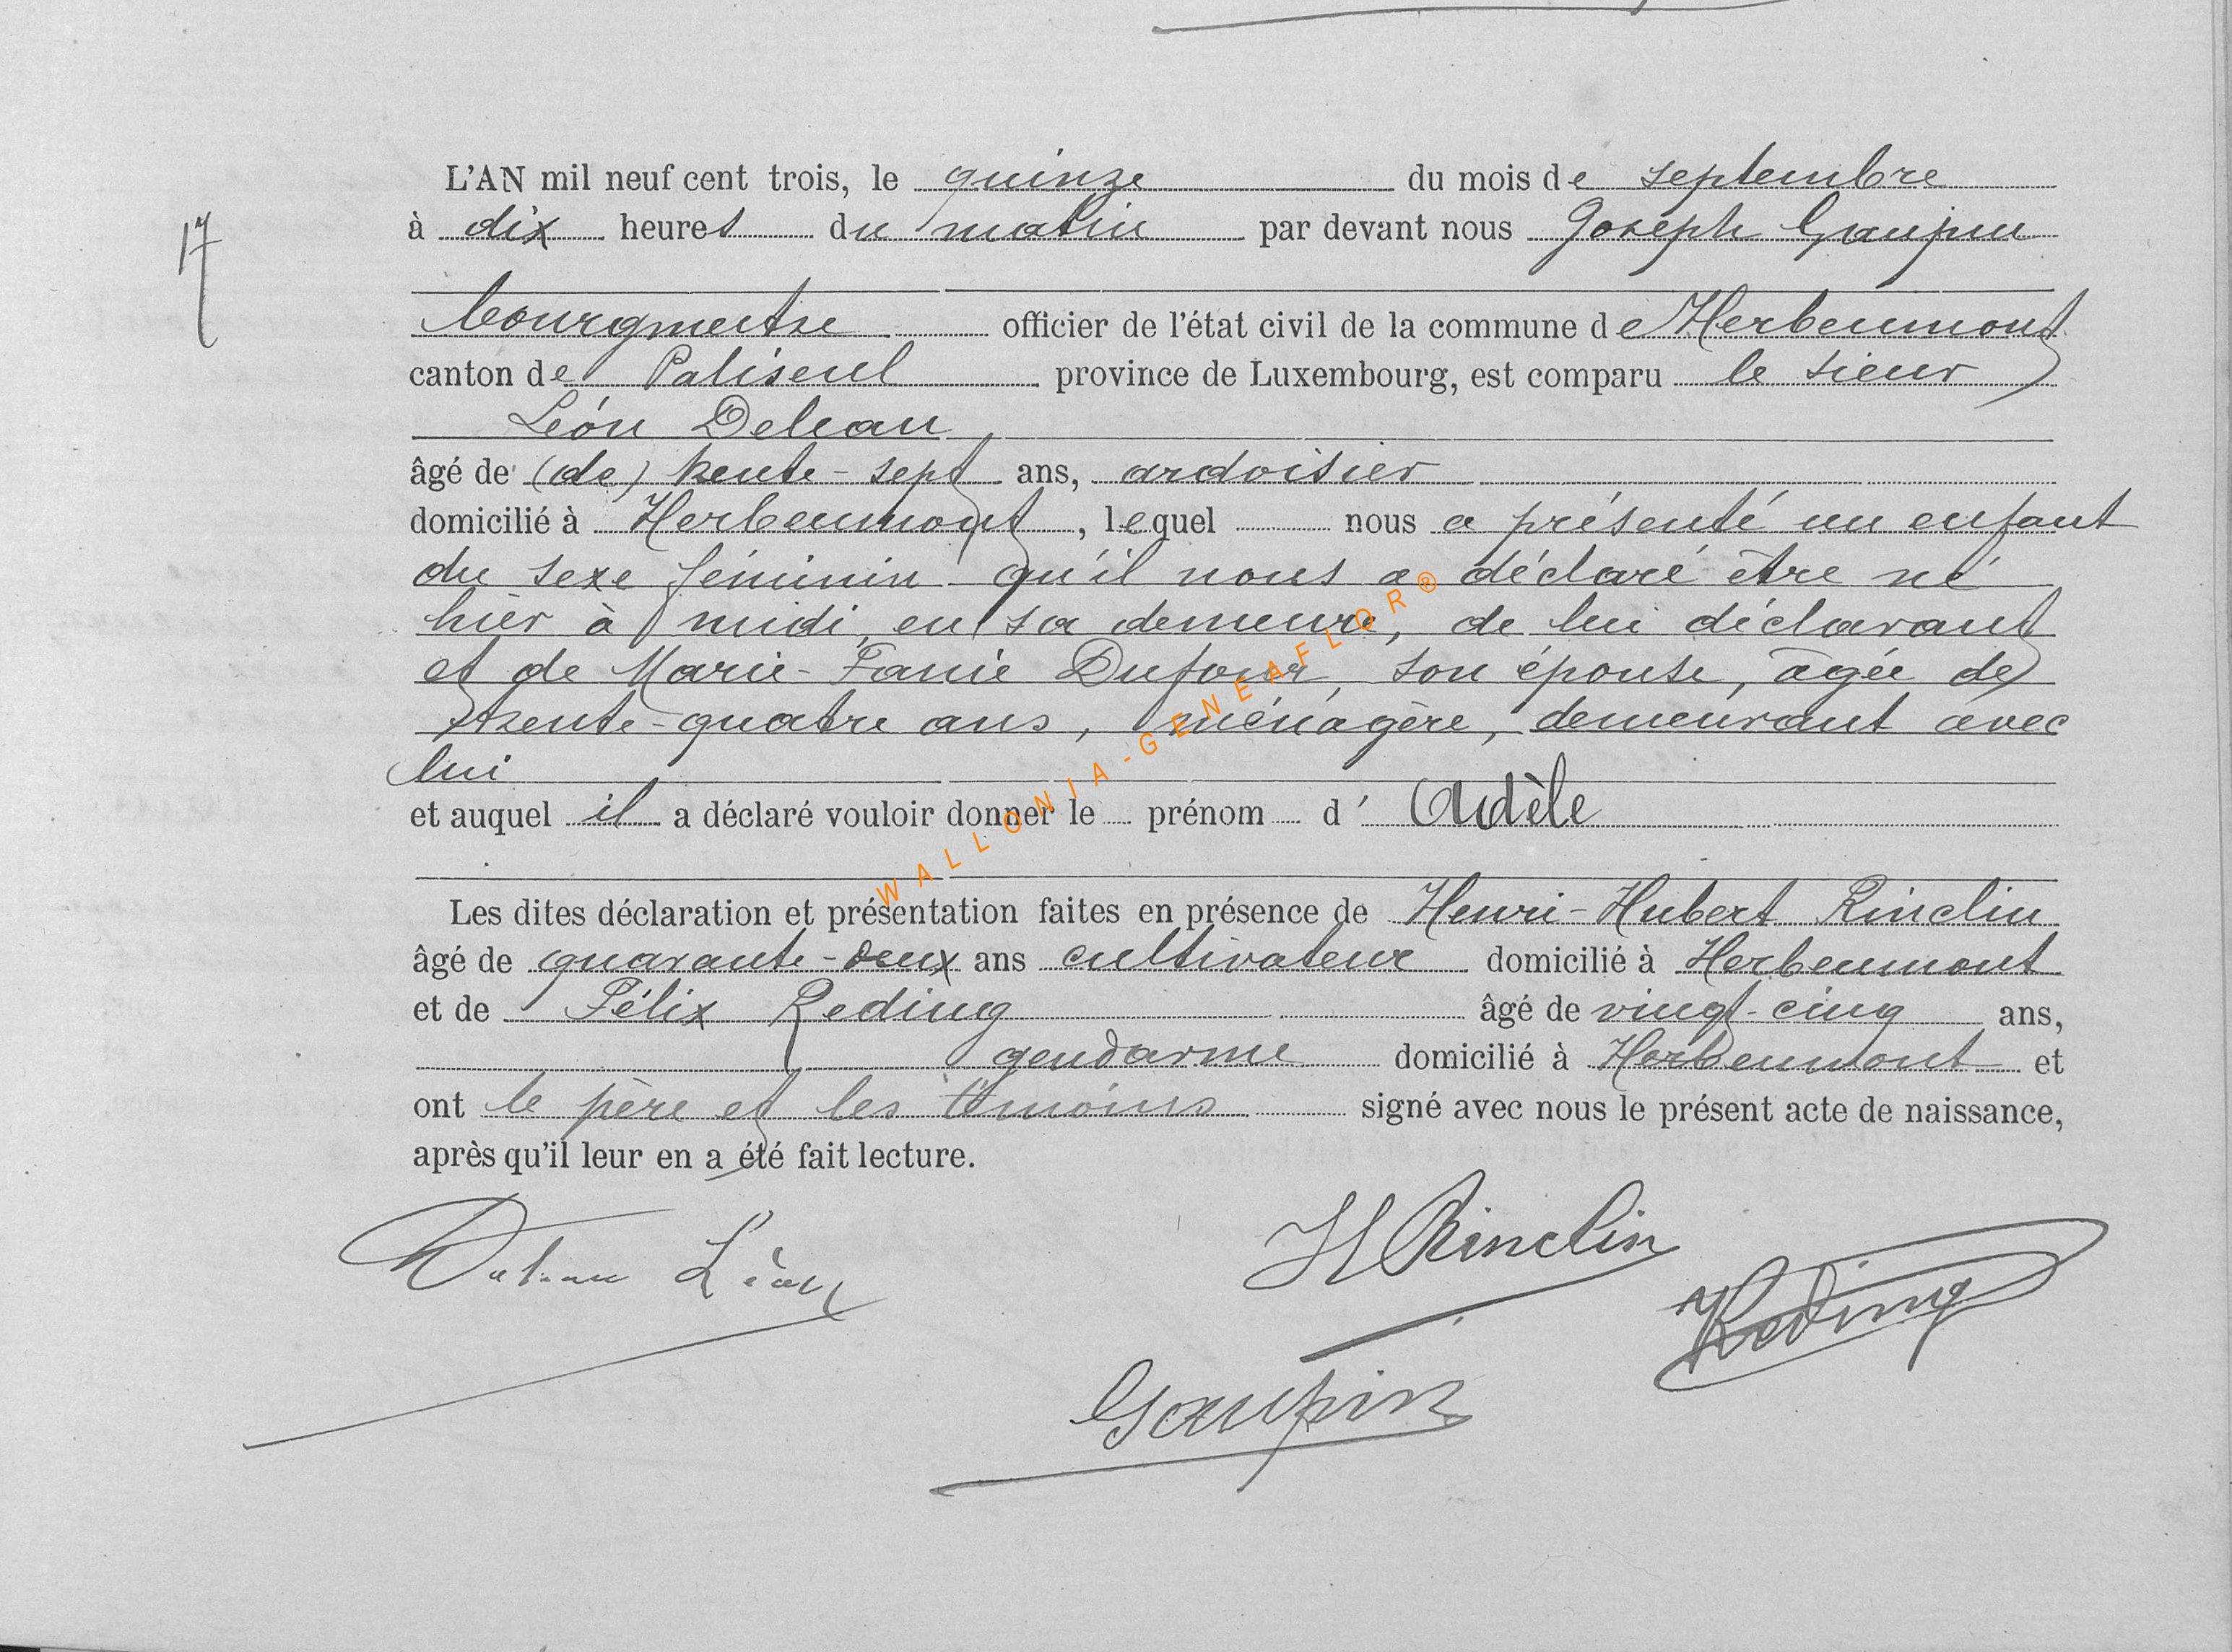 L'AN mil neuf cent trois, le quinze du mois de septembre
17
à dix heures du matin par devant nous Joseph Gaupin
bourgmestre officier de l'état civil de la commune de Herbeumont
canton de Paliseul province de Luxembourg, est comparu le sieur
Léon Deleau
âgé de (de) trente-sept ans, ardoisier
domicilié à Herbeumont, lequel nous a présenté un enfant
du sexe féminin qu'il nous a déclaré être né
hier à midi, en sa demeure, de lui déclarant
et de Marie-Fanie Dufour, son épouse, âgée de
trente-quatre ans, ménagère, demeurant avec
lui
et auquel il a déclaré vouloir donner le prénom d' Adèle
WALLONIA-GENEAFLOR®
Les dites déclaration et présentation faites en présence de Henri-Hubert Rinclin
âgé de quarante-deux ans cultivateur domicilié à Herbeumont
et de Félix Reding âgé de vingt-cinq ans,
gendarme domicilié à Herbeumont et
ont le père et les témoins signé avec nous le présent acte de naissance,
après qu'il leur en a été fait lecture.
Léon
H Rinclin
Reding
Gaupin